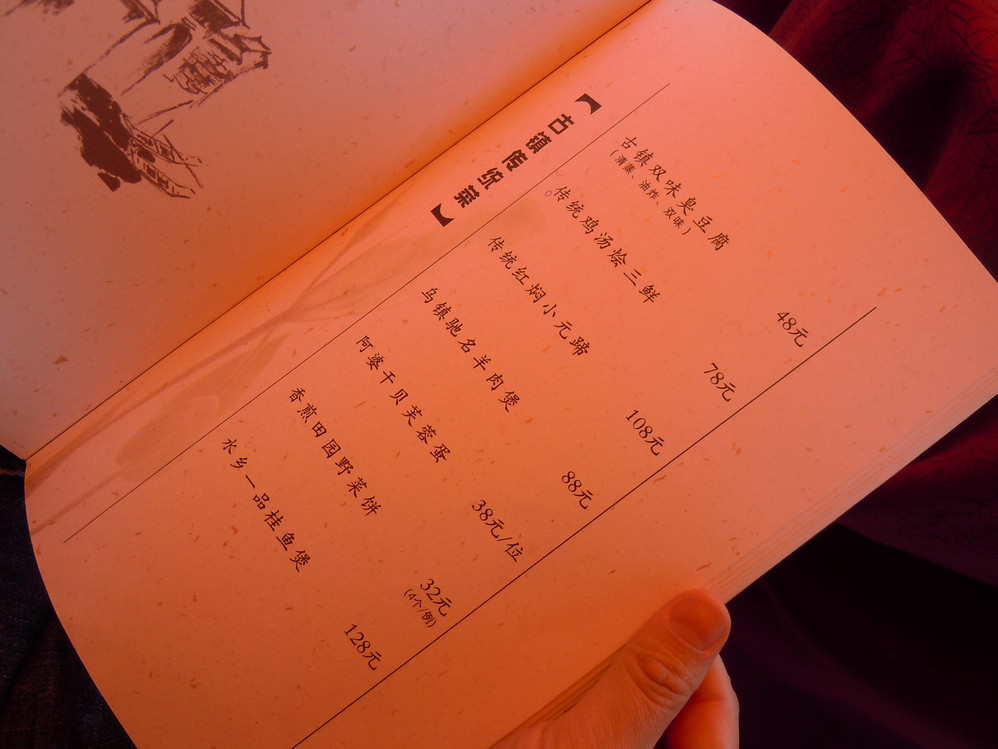 【古镇传统菜】
古镇双味臭豆腐 48元
(清蒸、油炸、双味)
传统鸡汤烩三鲜 78元
传统红焖小元蹄 108元
乌镇驰名羊肉煲 88元
阿婆干贝芙蓉蛋 38元/位
香煎田园野菜饼 32元
(4个/例)
水乡一品桂鱼煲 128元